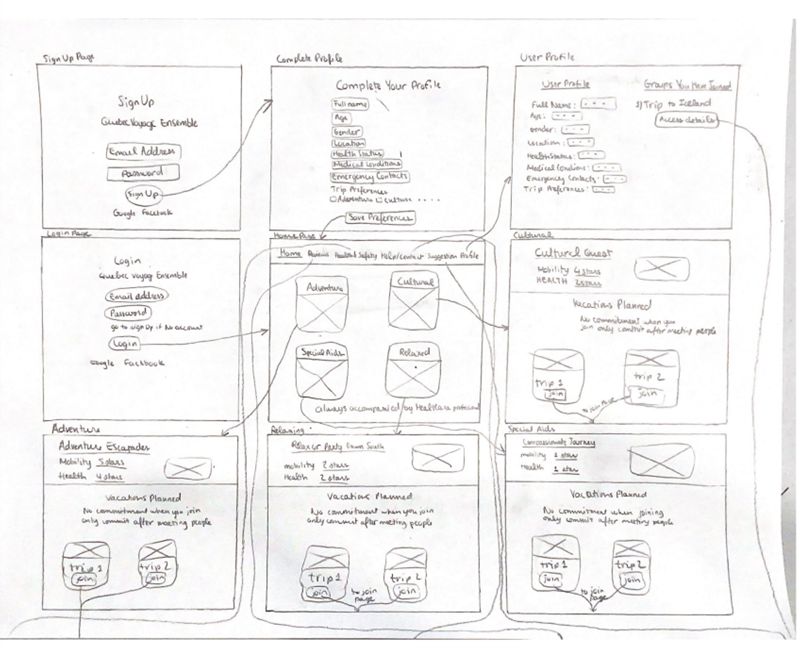 Sign Up Page
Sign Up
Quebec Voyage Ensemble
Email Address
Password
Sign Up
Google Facebook
Complete Profile
Complete Your Profile
Full name
Age
Gender
Location
Health Status
Medical Conditions
Emergency Contacts
Trip Preferences
Adventure Culture ....
Save Preferences
User Profile
User Profile
Full Name:
Age:
Gender:
Location:
Health Status:
Medical Conditions:
Emergency Contacts:
Trip Preferences:
Groups You Have Joined
1) Trip to Iceland
Access details
Login Page
Login
Quebec Voyage Ensemble
Email address
Password
go to sign Up if No account
Login
Google Facebook
Home Page
Home Reviews Health & Safety Help/Contact Suggestion Profile
Adventure
Cultural
Special Aids
Relaxed
always accompanied by Healthcare
Cultural
Cultural Quest
Mobility 4 stars
HEALTH 3 stars
Vacations Planned
No commitment when you
join only commit after meeting people
trip 1
join
trip 2
join
to join page
Adventure
Adventure Escapades
Mobility 5 stars
Health 4 stars
Vacations Planned
No commitment when you join
only commit after meeting people
trip 1
join
trip 2
join
Relaxing
Relax or Party Down South
mobility 2 stars
Health 2 stars
Vacations Planned
No commitment when you join
only commit after meeting people
trip 1
join
trip 2
join
to join
page
Special Aids
Compassionate Journey
mobility 1 stars
Health 1 stars
Vacations Planned
No commitment when joining
only commit after meeting people
trip 1
join
trip 2
join
to join
page